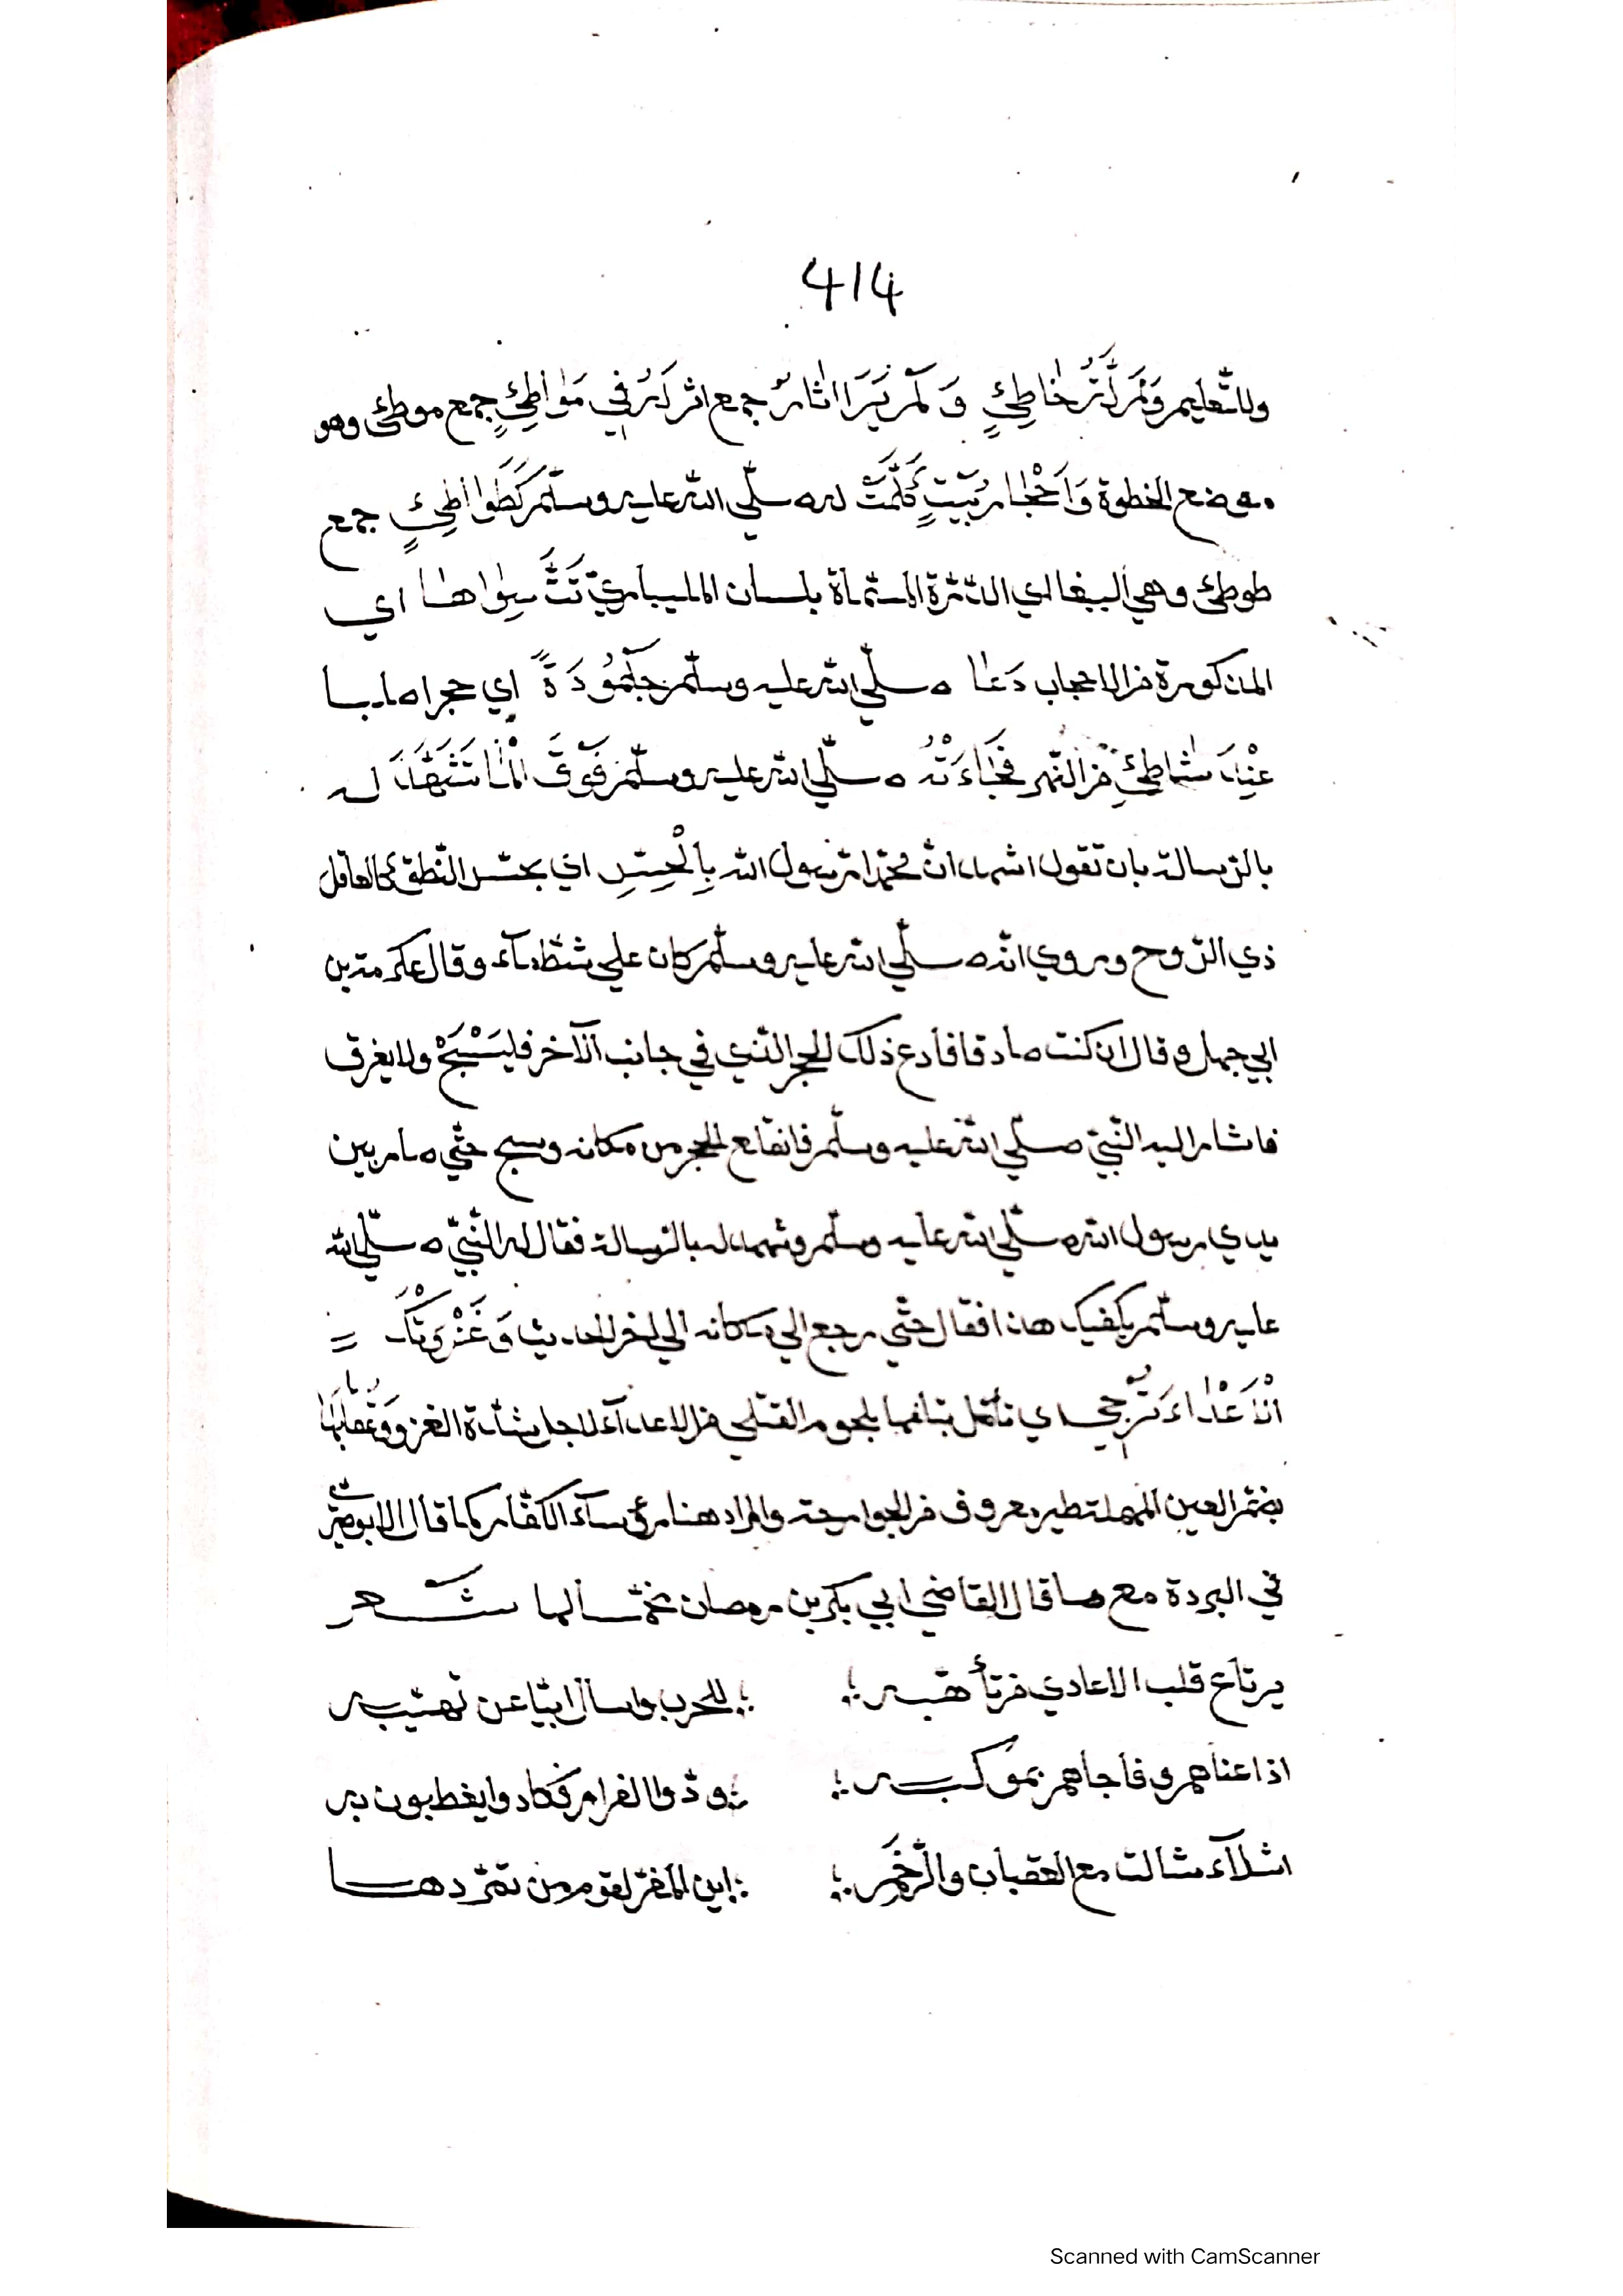 414
وللتّعليم وَلَمْ لَتَرُ خَاطِئٍ وَلَمْ يَرَ اٰثَارُ جمع اثر لَهُ فِي مَوَاطِئٍ جمع موطئ وهو
موضع الخطوة وَاَحْجَارُ بَيْتٍ كَلَّمَتْ له صلّي الله عليه وسلّم كَطَوَاطِئٍ جمع
طوطئ وهي الببغا اي الدّرّة المسمّاة بلسان المليباريّ تَتَّ سِوَاهَا اي
المذكورة من الاحجاب دَعَا صلّي الله عليه وسلّم جَلْمُوْدَةً اي حجرا صلبا
عِنْدَ شَاطِئٍ من النّهر فَجَاءَتْهُ صلّي الله عليه وسلّم فَوْقَ الْمَا تَشَهَّدَ له
بالرّسالة بان تقول اشهد انّ محمّدا رسول الله بِالْحِسِّ اي بحسّ النّطق كالعاقل
ذي الرّوح وروي انّه صلّي الله عليه وسلّم كان علي شطّ مآء وقال عكرمة بن
ابي جهل وقال ان كنت صادقا فادع ذلك الحجر الّذي في جانب الآخر فليَسْبَحْ ولا يغرق
فاشار اليه النّبيّ صلّي الله عليه وسلّم فانقلع الحجر من مكانه وسبح حتّي صار بين
يدي رسول الله صلّي الله عليه وسلّم وشهد له بالرّسالة فقال له النّبيّ صلّي الله
عليه وسلّم يكفيك هذا فقال حتّي يرجع الي مكانه الي اخر الحديث وَغَزْوَتُكَ =
الْاَعْدَاءَ تُرْجِي اي تأكل بتلفها بلحوم القتلي من الاعدآء لاجل شدّة الغزو وَعُقَابُهَا
بضمّ العين المهملة طير معروف من الجوارحة والمراد هنا رؤسآء الكفّار كما قال الابوصيريّ
في البردة مع ما قال القاضي ابي بكر بن رمضان مخمّسا لها شعر
يرتاع قلب الاعادي من تأهّبه للحرب واسأل ابيّا عن تهيّبه
اذا عناهم وفاجاهم بموكبه ودّوا الفرار فكادوا يغطبون به
اشلآء شالت مع العقبان والرّخم اين المفرّ لقوم من تمرّدها